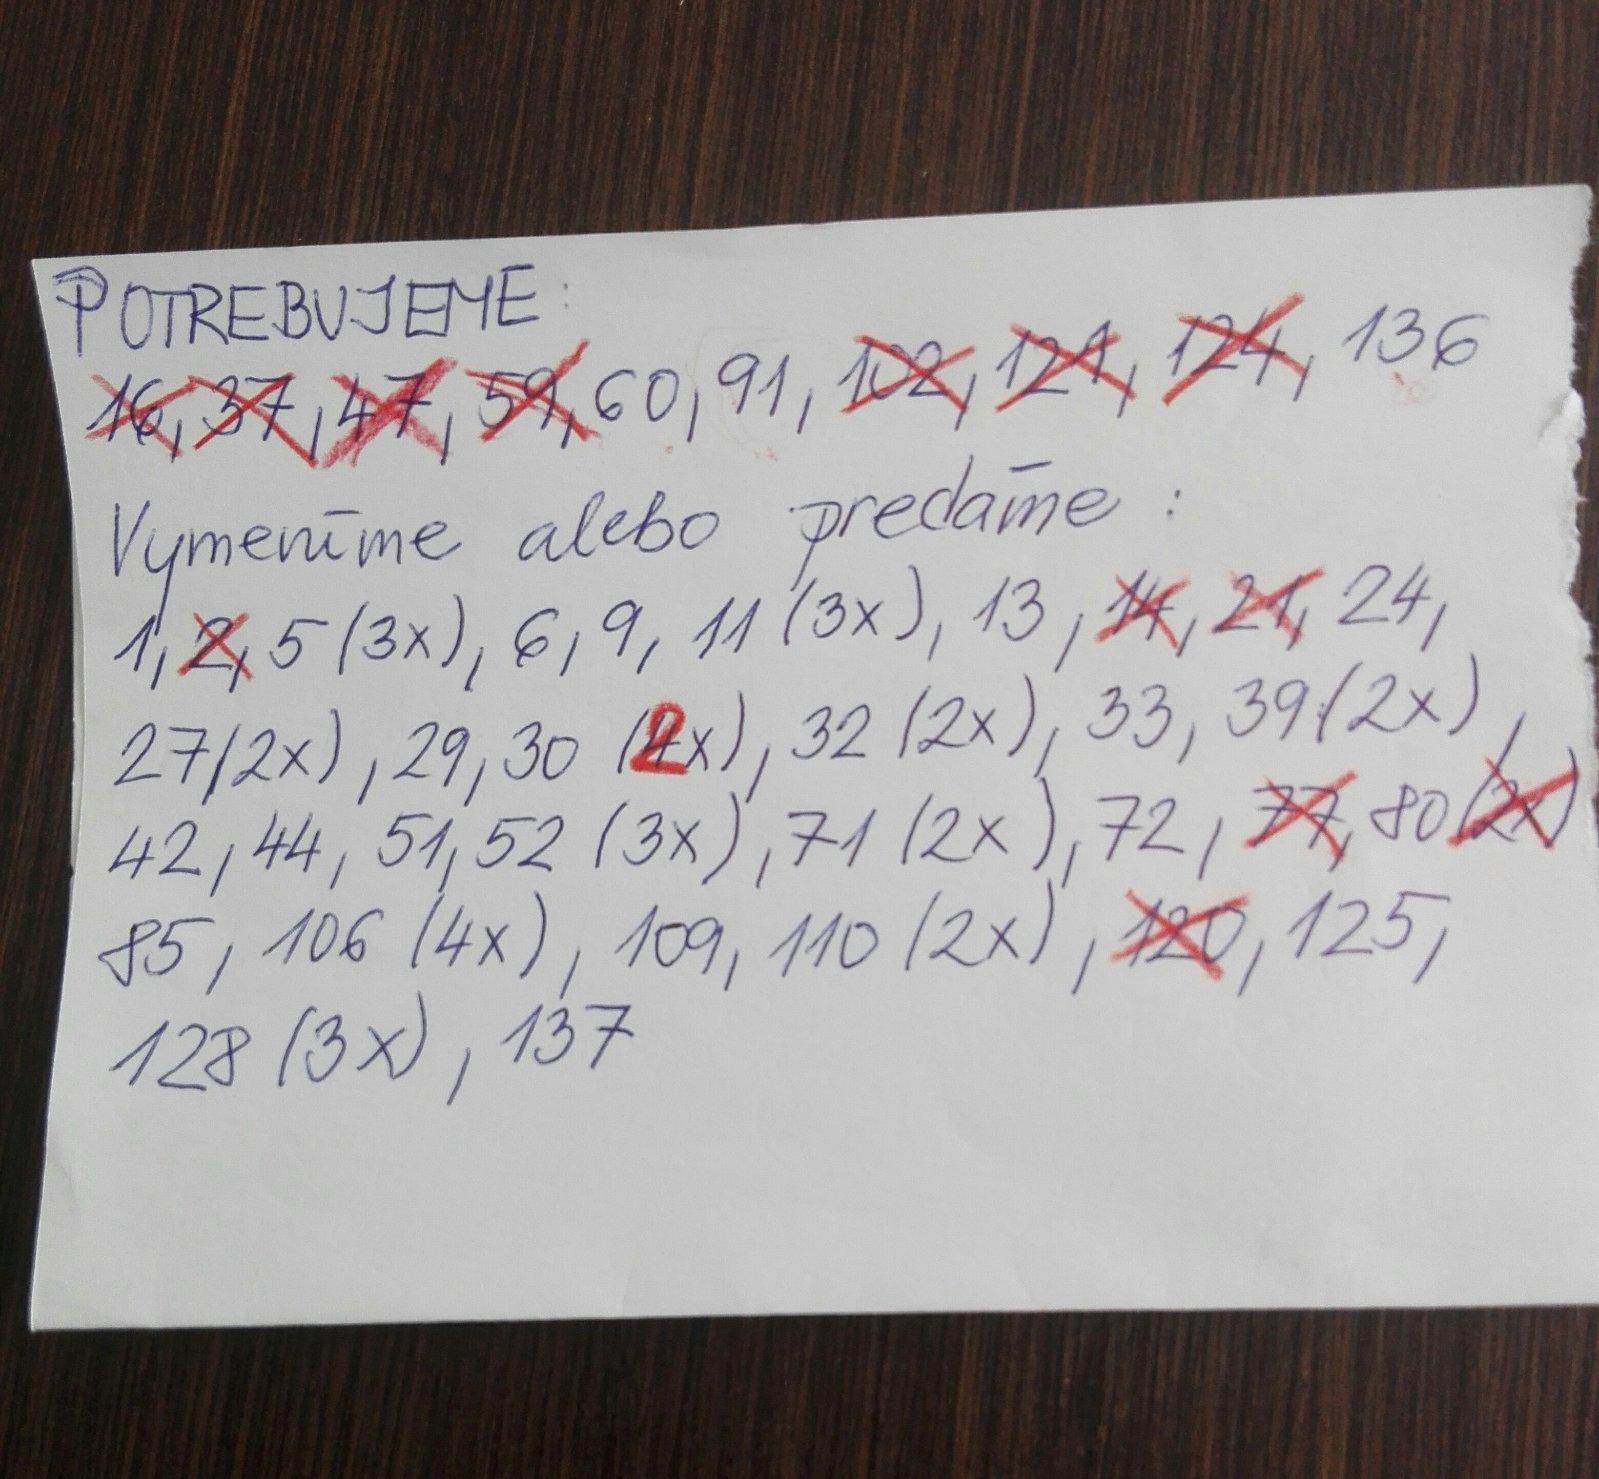 POTREBUJEME:
16, 37, 47, 59, 60, 91, 102, 121, 124, 136
Vymeníme alebo predáme :
1, 2, 5 (3x), 6, 9, 11 (3x), 13, 14, 21, 24,
27(2x), 29, 30 (2x), 32 (2x), 33, 39 (2x),
42, 44, 51, 52 (3x), 71 (2x), 72, 77, 80 (2x)
85, 106 (4x), 109, 110 (2x), 120, 125,
128 (3x), 137